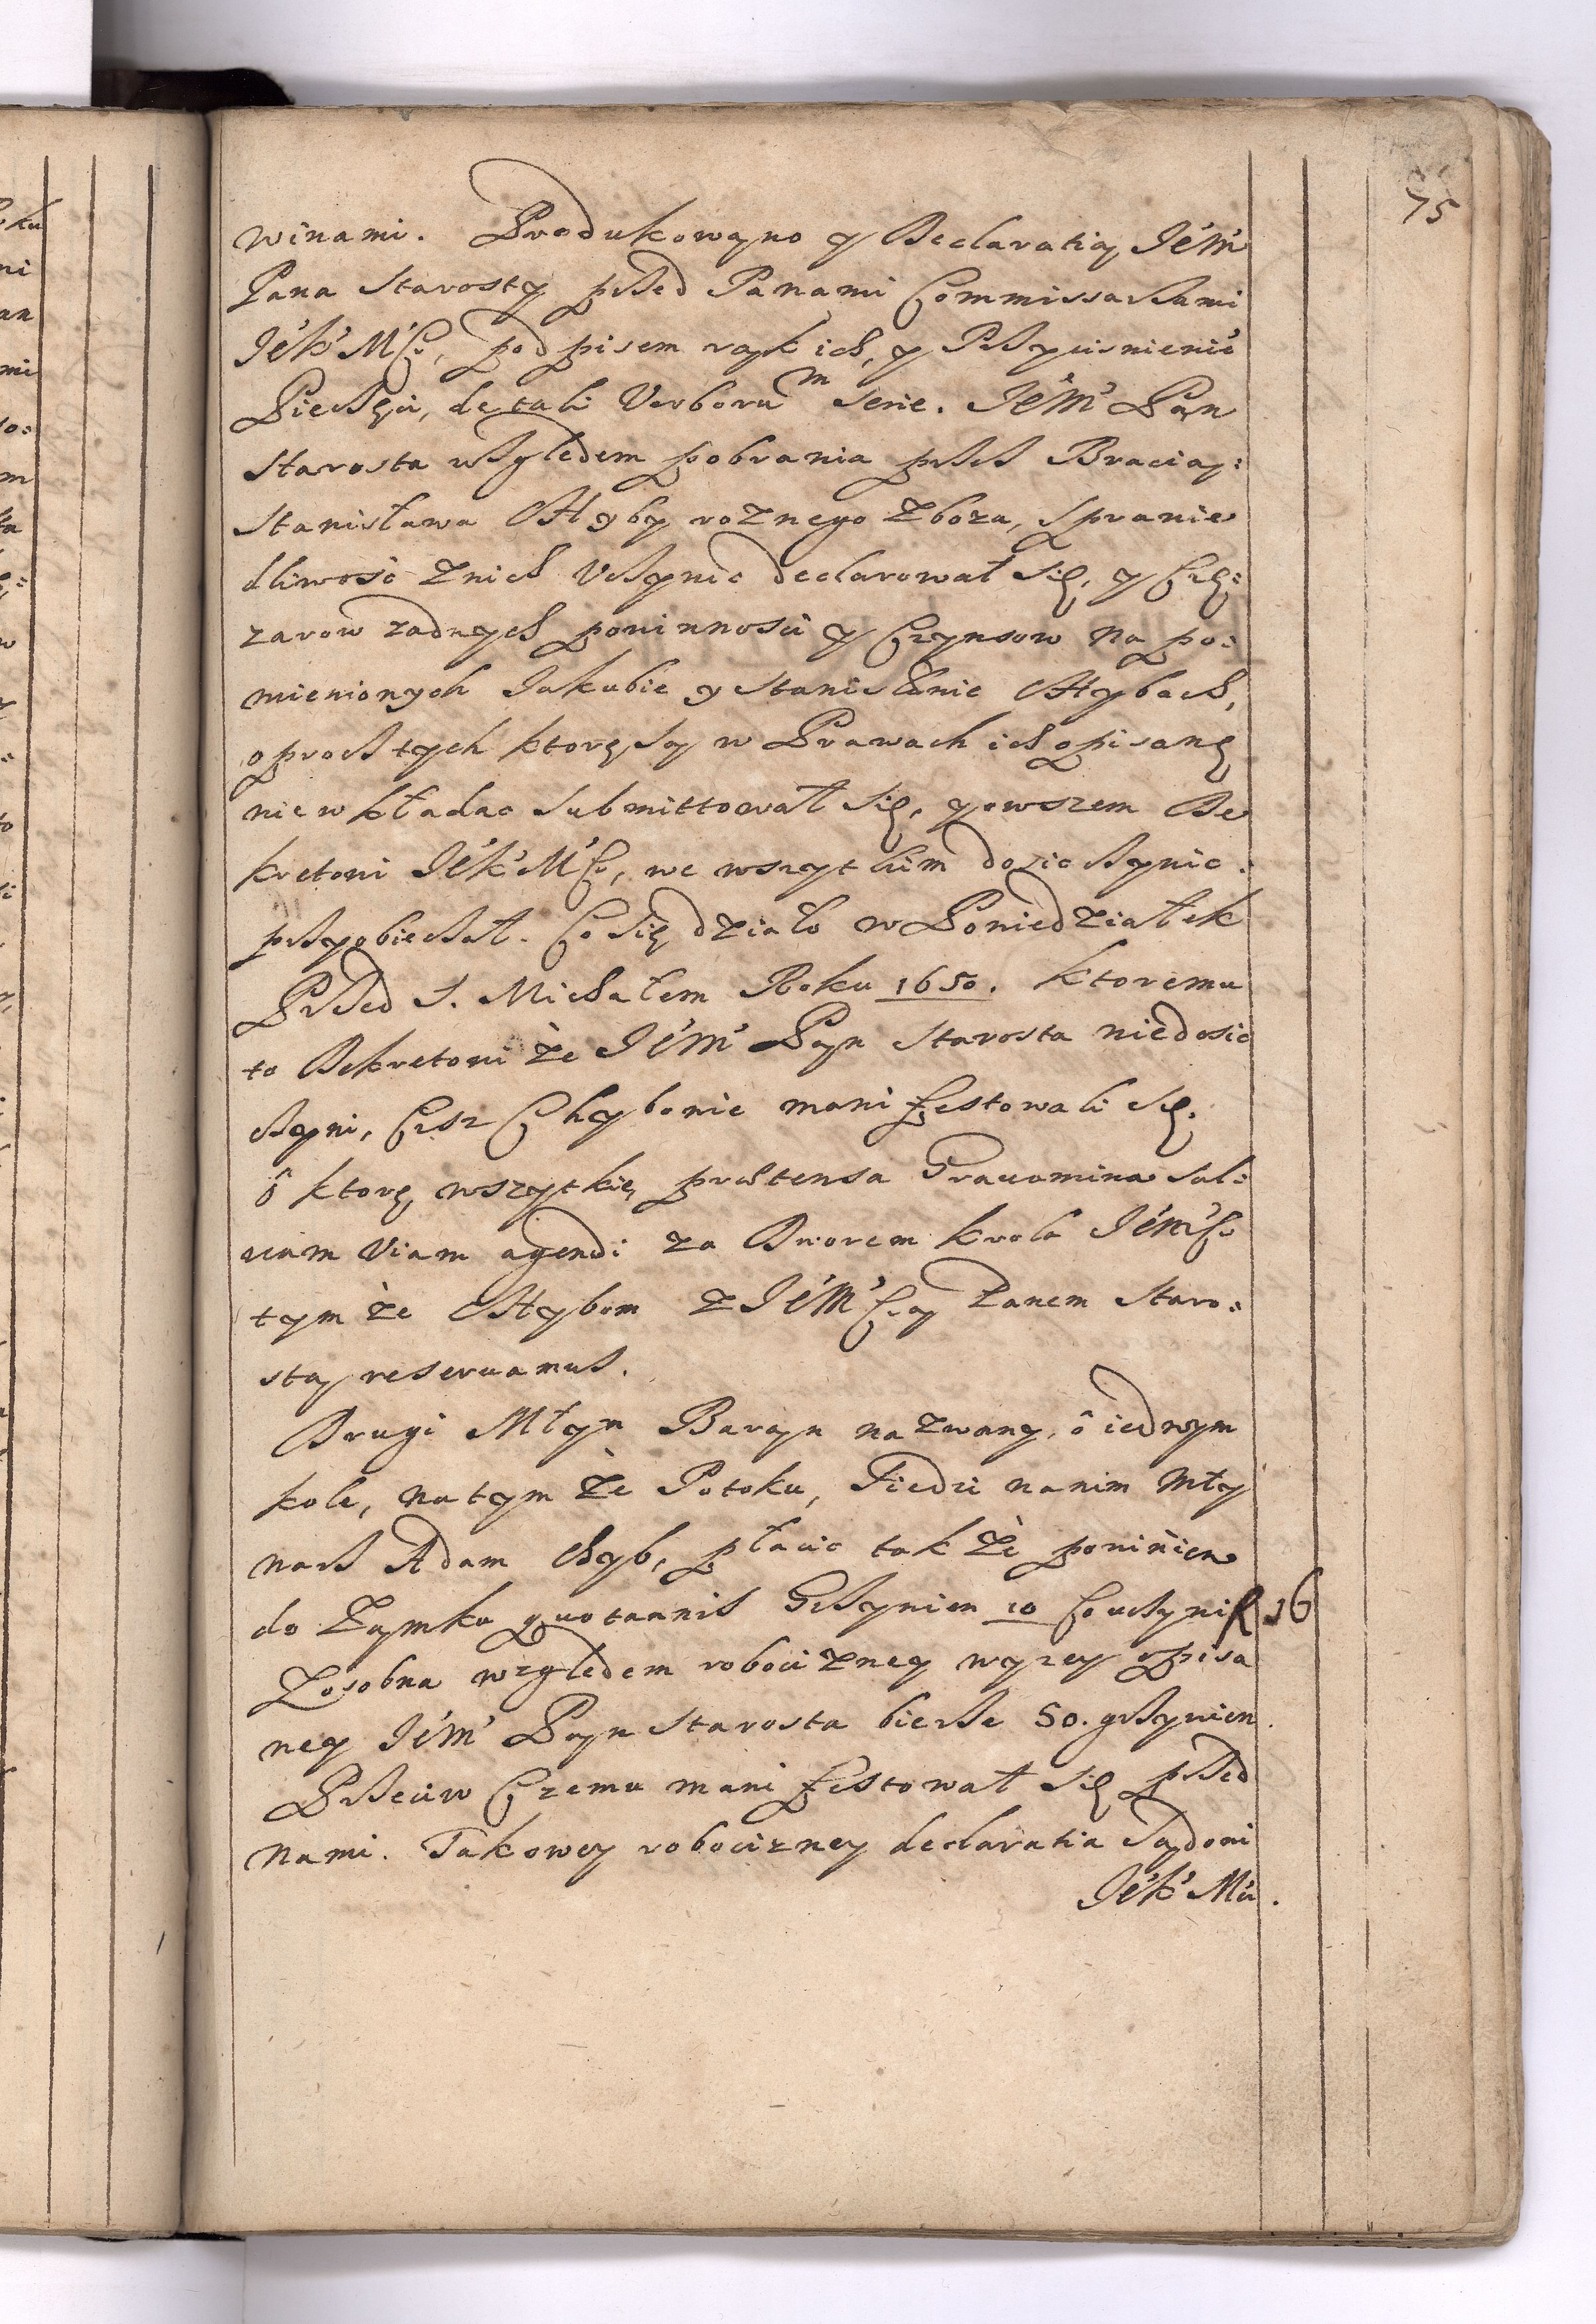 75
winami. Produkowano y Declaratią JéM
Pana Starosty przed Panami Commissarzami
JéK'MCi, podpisem rąk ich, y Przycisnienié
Pieczęci, de tali Verborum serie. JéM' Pan
Starosta względem pobrania przez Bracią:
Stanisława Chyby roznego Zboza, Sprawie
dliwosc Znich Vczynic declarował się, y Cię:
zarow zadnych powinnosci y Czynsow na po:
mienionych Jakubie y Stanisławie Chybach,
oprocz tych ktore są w Prawach ich opisane
nie wkładac submittował się, y owszem De
kretowi JéK'MCi, we wszytkim dosic czynic
przyobieczał. Co się działo w Poniedziałek
Przed S. Michałem Roku 1650. ktoremu
to Dekretowi że JéM' Pan Starosta niedosic
czyni, Ciż Chybowie manifestowali się.
ô ktore wszytkie prætensa Grauamina sal:
uam Viam agendi za Dworem krola JéMCi
tym że Chybom z JéM'Cią Panem Staro:
stą reseruamus.
Drugi Młyn Baran nazwany, ô iednym
kole, na tym że Potoku, Siedzi na nim Mły
narz Adam Chyb, płacic tak że powinien
do Zamku quotannis Grzywien 10 Co uczyni f 16
Zosobna względem robocizney wyzey opisa
ney JéM' Pan Starosta bierze 50. grzywien.
Przeciw Czemu manifestował się przed
nami. Takowey robocizney declaratia Sądowi
JéK'Mci.